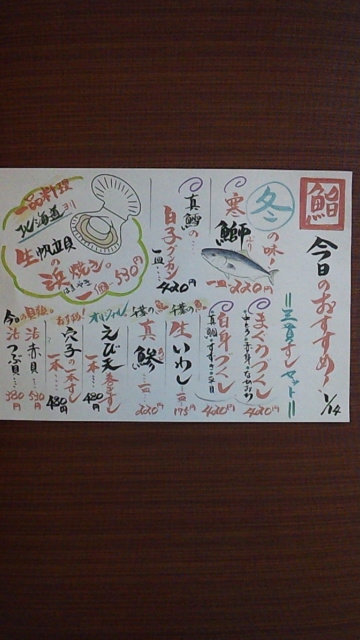 鮨
今日のおすすめ！
1/14
冬の味。
寒鰤
一皿 220円
真鱈の…
白子ダイカン
一皿… 420円
一品料理
北海道ヨリ
生帆立貝の
浜焼き。
はまやき
一個… 530円
＝三貫ずしセット＝
まぐろづくし
420円
白身づくし
420円
千葉の魚。
生いわし
一皿 175円
千葉の魚。
真鯵
一皿… 220円
オリジナル！
えび天巻ずし
一本… 480円
おすすめ！
穴子の一本すし
一本… 480円
今日の貝類。
活赤貝… 530円
活つぶ貝… 380円